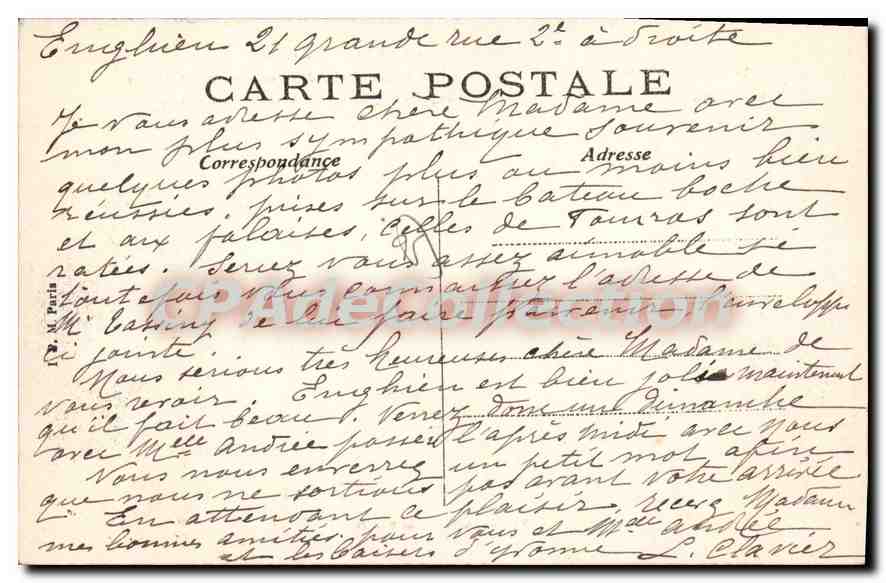 Enghien 21 grande rue 2e à droite
CARTE POSTALE
Je vous adresse chère Madame avec
mon plus sympathique souvenir
Correspondance
Adresse
quelques photos plus ou moins bien
réussies, prises sur le bateau boche
et aux falaises, celles de Fouras sont
ratées. Seriez vous assez aimable si
toutefois vous connaissez l'adresse de
Mr Tassiny de lui faire parvenir l'enveloppe
ci jointe.
I. P. M. Paris
CPAdeCollection
Nous serions très heureuses chère Madame de
vous revoir. Enghien est bien joli maintenant
qu'il fait beau. Venez donc un dimanche
avec Melle Andrée passer l'après midi avec nous
Vous nous enverrez un petit mot afin
que nous ne sortions pas avant votre arrivée
En attendant ce plaisir, recevez Madame
mes bonnes amitiés pour vous et Melle Andrée
et les baisers d'Yvonne L. Clavier